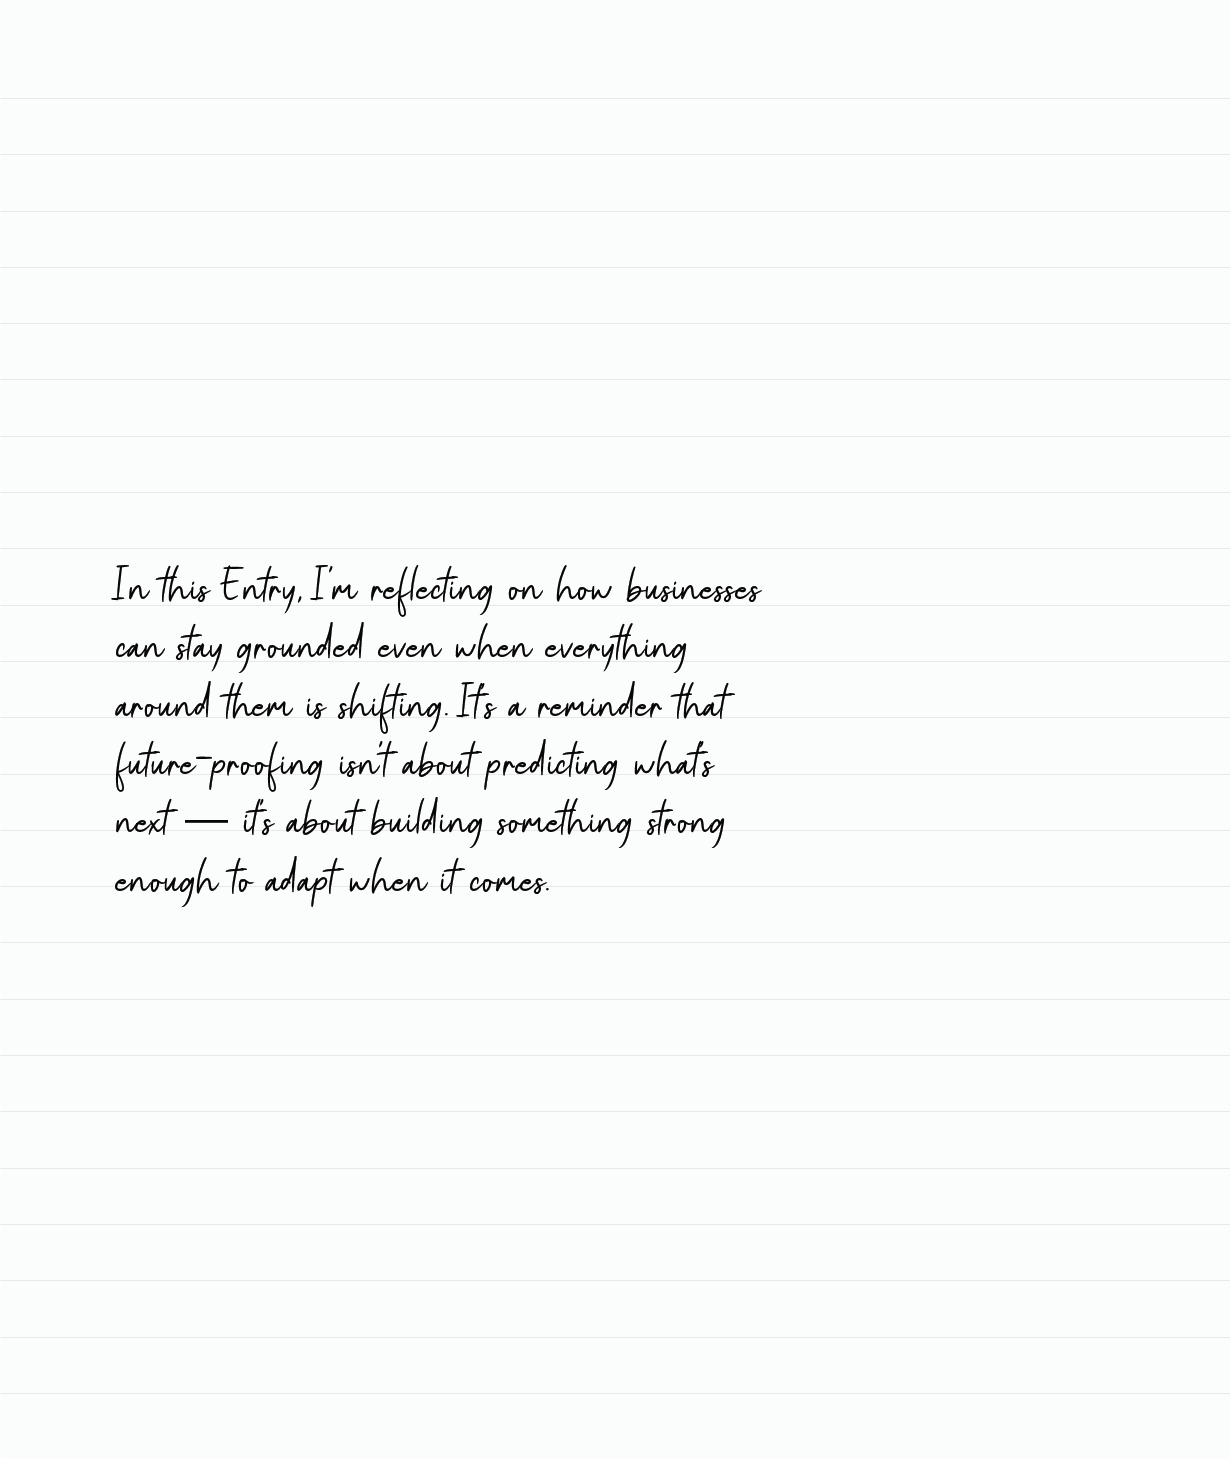 In this Entry, I'm reflecting on how businesses
can stay grounded even when everything
around them is shifting. It's a reminder that
future-proofing isn't about predicting what's
next — it's about building something strong
enough to adapt when it comes.